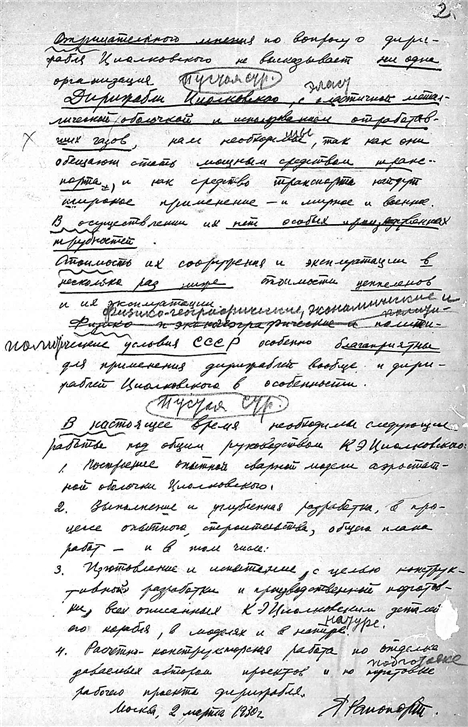 2.
Отрицательного мнения по вопросу о дири-
жабля Циолковского не высказывает ни одна
организация. Пустая стр.
Дирижабли Циолковского, с эластичной метал-
лической оболочкой и использованием отработав-
ших газов, нам необходимы, так как они
обещают стать мощным средством транс-
порта, и как средство транспорта найдут
широкое применение – и мирное и военное.
В осуществлении их нет особых производственных
трудностей.
Стоимость их сооружения и эксплоатации в
несколько раз ниже стоимости цеппелинов
и их эксплоатации.
Физико-географические, экономические и
политические условия СССР особенно благоприятны
для применения дирижаблей вообще и дири-
жаблей Циолковского в особенности.
Пустая стр.
В настоящее время необходимы следующие
работы под общим руководством К.Э.Циолковского:
1. Построение опытной сварной модели аэростат-
ной оболочки Циолковского.
2. Выполнение и углубленная разработка, в про-
цессе опытного строительства, общего плана
работ – и в том числе:
3. Изготовление и испытание, с целью конструк-
тивной разработки и производственной подготов-
ки, всех описанных К.Э.Циолковским деталей
его корабля, в моделях и в натуре.
4. Расчетно-конструкторская работа по отделке
даваемых автором проектов и по подготовке
рабочего проекта дирижабля.
Москва, 2 марта 1930 г. Я. Рапопорт